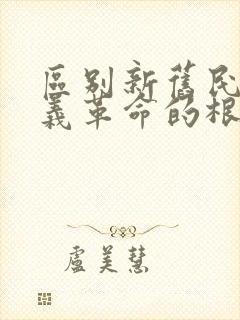 區別新舊民
義革命的根
盧美慧